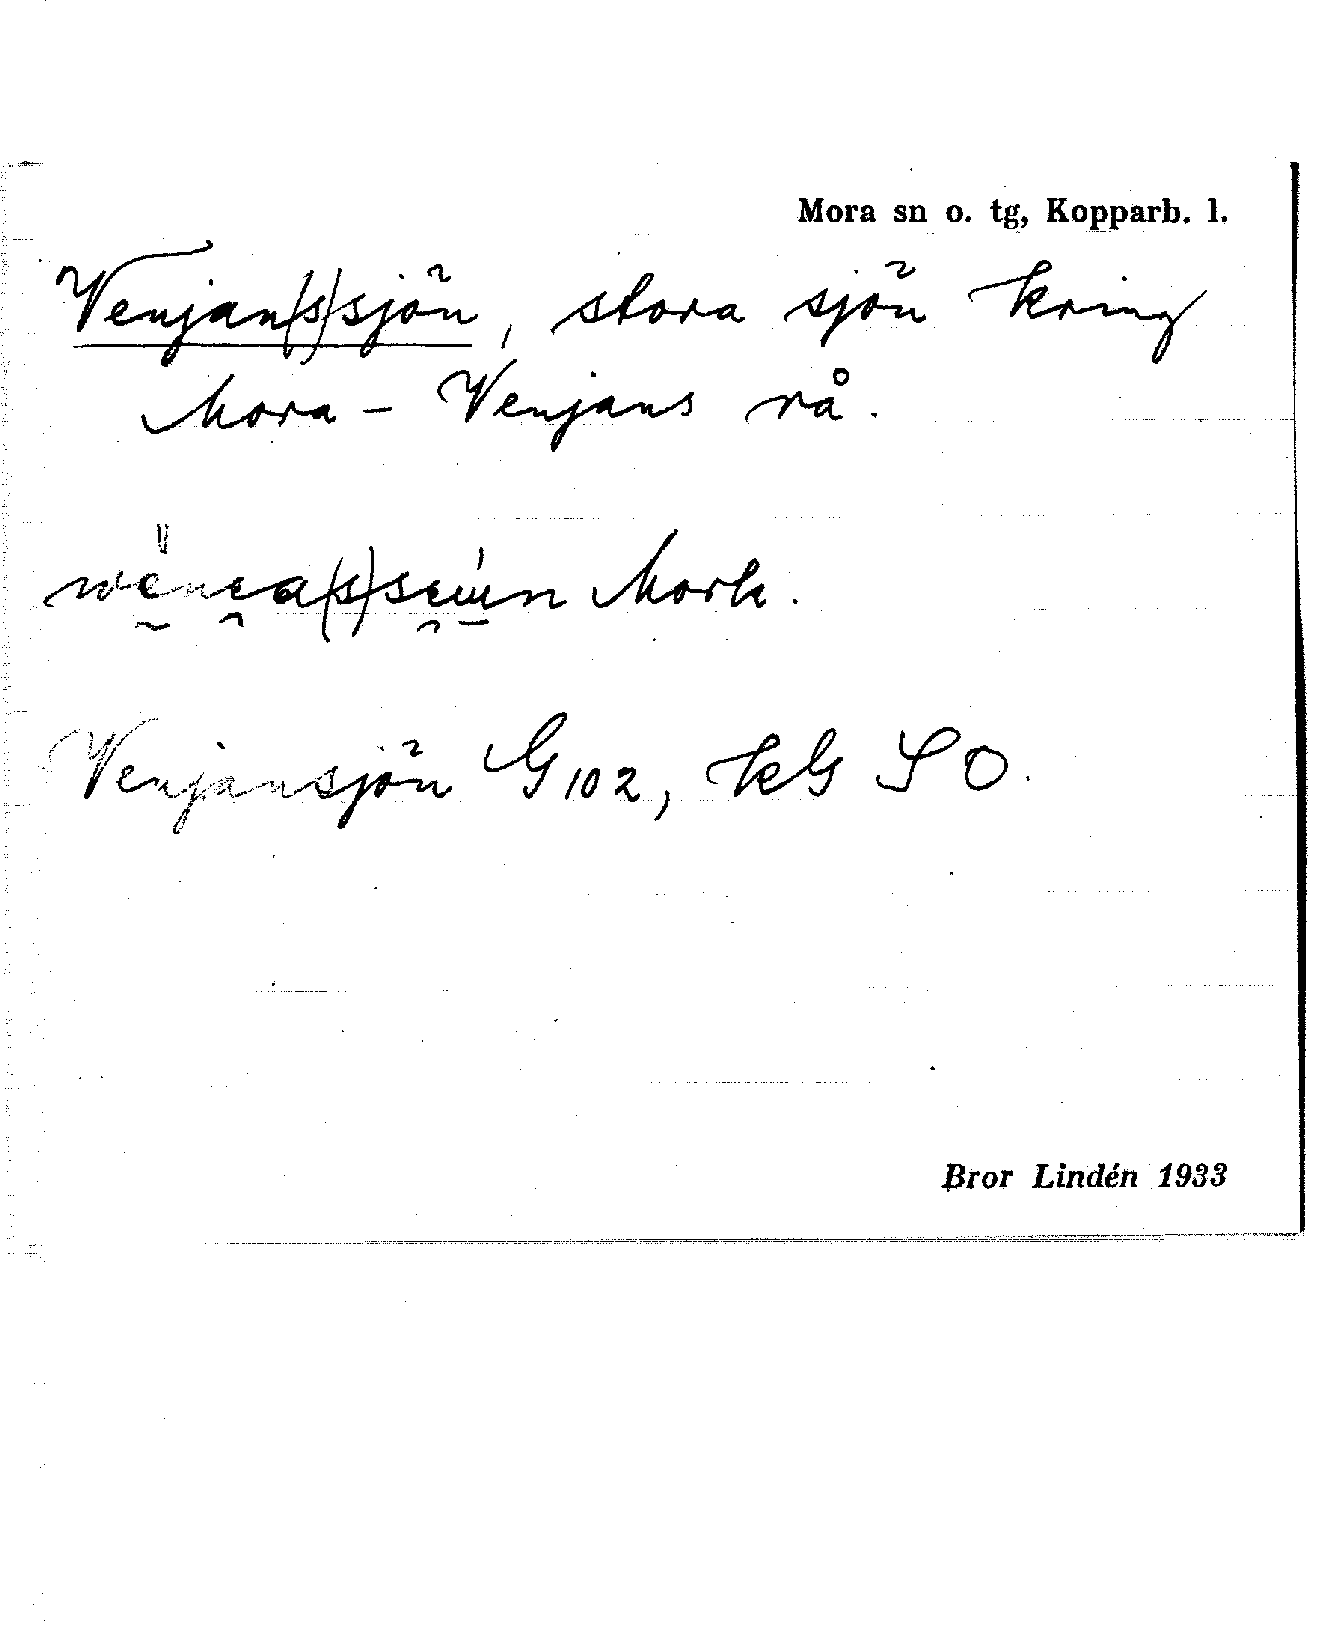 Mora sn o. tg, Kopparb. l.
Venjan(s)sjön, stora sjön kring
Mora - Venjans rå.
Mork.
Venjansjön G 102, kG SO.
Bror Lindén 1933